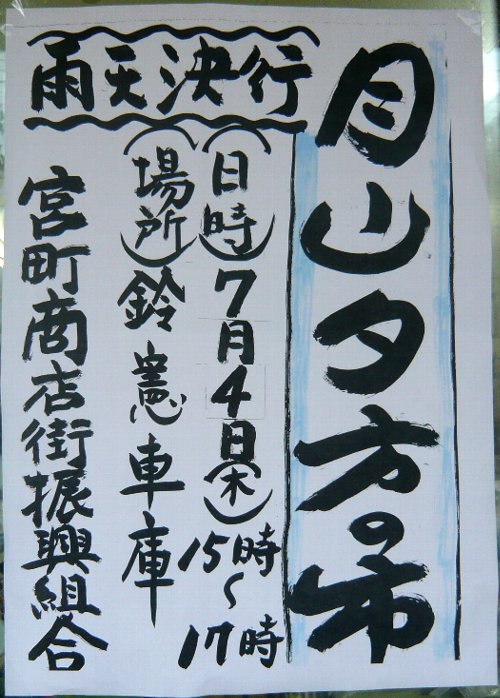 月山夕方の市
雨天決行
(日時)7月4日(木)15時~17時
(場所)鈴憲車庫
宮町商店街振興組合